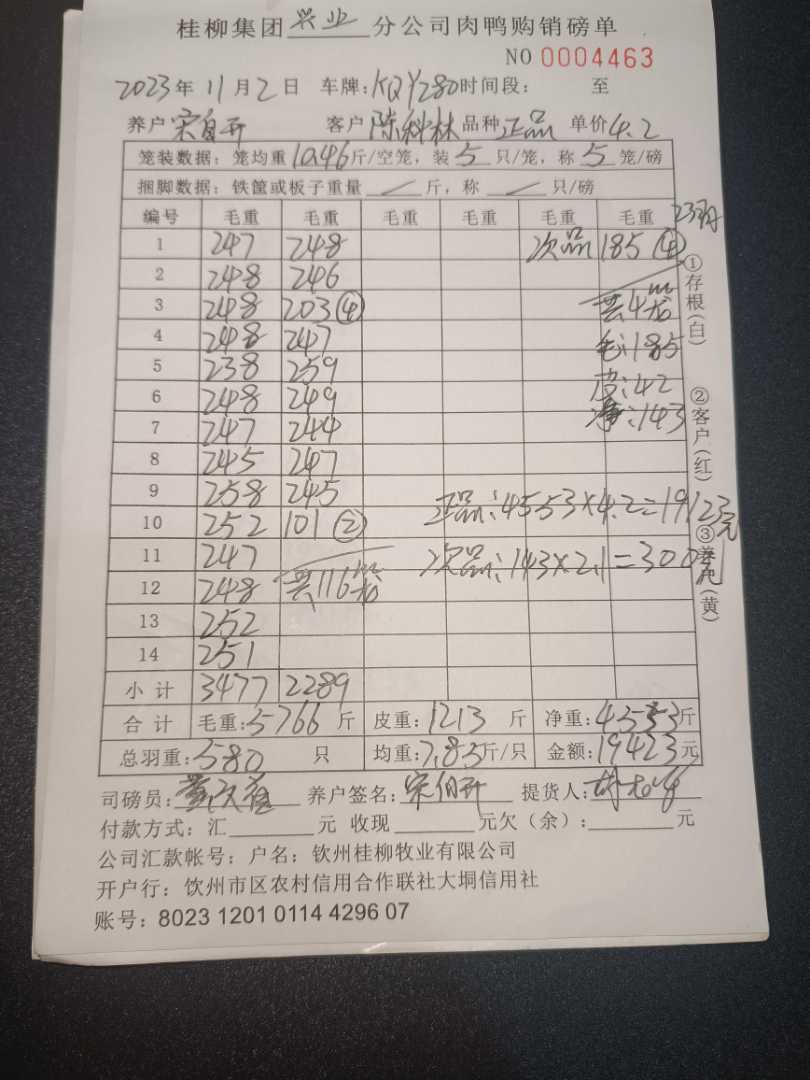 桂柳集团兴业分公司肉鸭购销磅单
NO 0004463
2023年11月2日 车牌:KQY280时间段: 至
养户宋自开 客户陈科林品种正品 单价4.2
笼装数据:笼均重10.46斤/空笼,装5只/笼,称5笼/磅
捆脚数据:铁筐或板子重量/斤,称/只/磅
编号 毛重 毛重 毛重 毛重 毛重 毛重
1 247 248 次品 185④
2 248 246
3 248 203④ 共4笼
4 248 247 毛:185
5 238 259 皮:42
6 248 249 净:143
7 247 244
8 245 247
9 258 245 正品:4553×4.2=19123元
10 252 101②
11 247 次品:143×2.1=300元
12 248 共116笼
13 252
14 251
小计 3477 2289
合计 毛重:5766斤 皮重:1213斤 净重:4553斤
总羽重:580只 均重:7.85斤/只 金额:19423元
司磅员: 养户签名:宋自开 提货人:
付款方式:汇 元 收现 元欠(余): 元
公司汇款帐号:户名:钦州桂柳牧业有限公司
开户行:钦州市区农村信用合作联社大垌信用社
账号:8023 1201 0114 4296 07
①存根(白)
②客户(红)
③养户(黄)